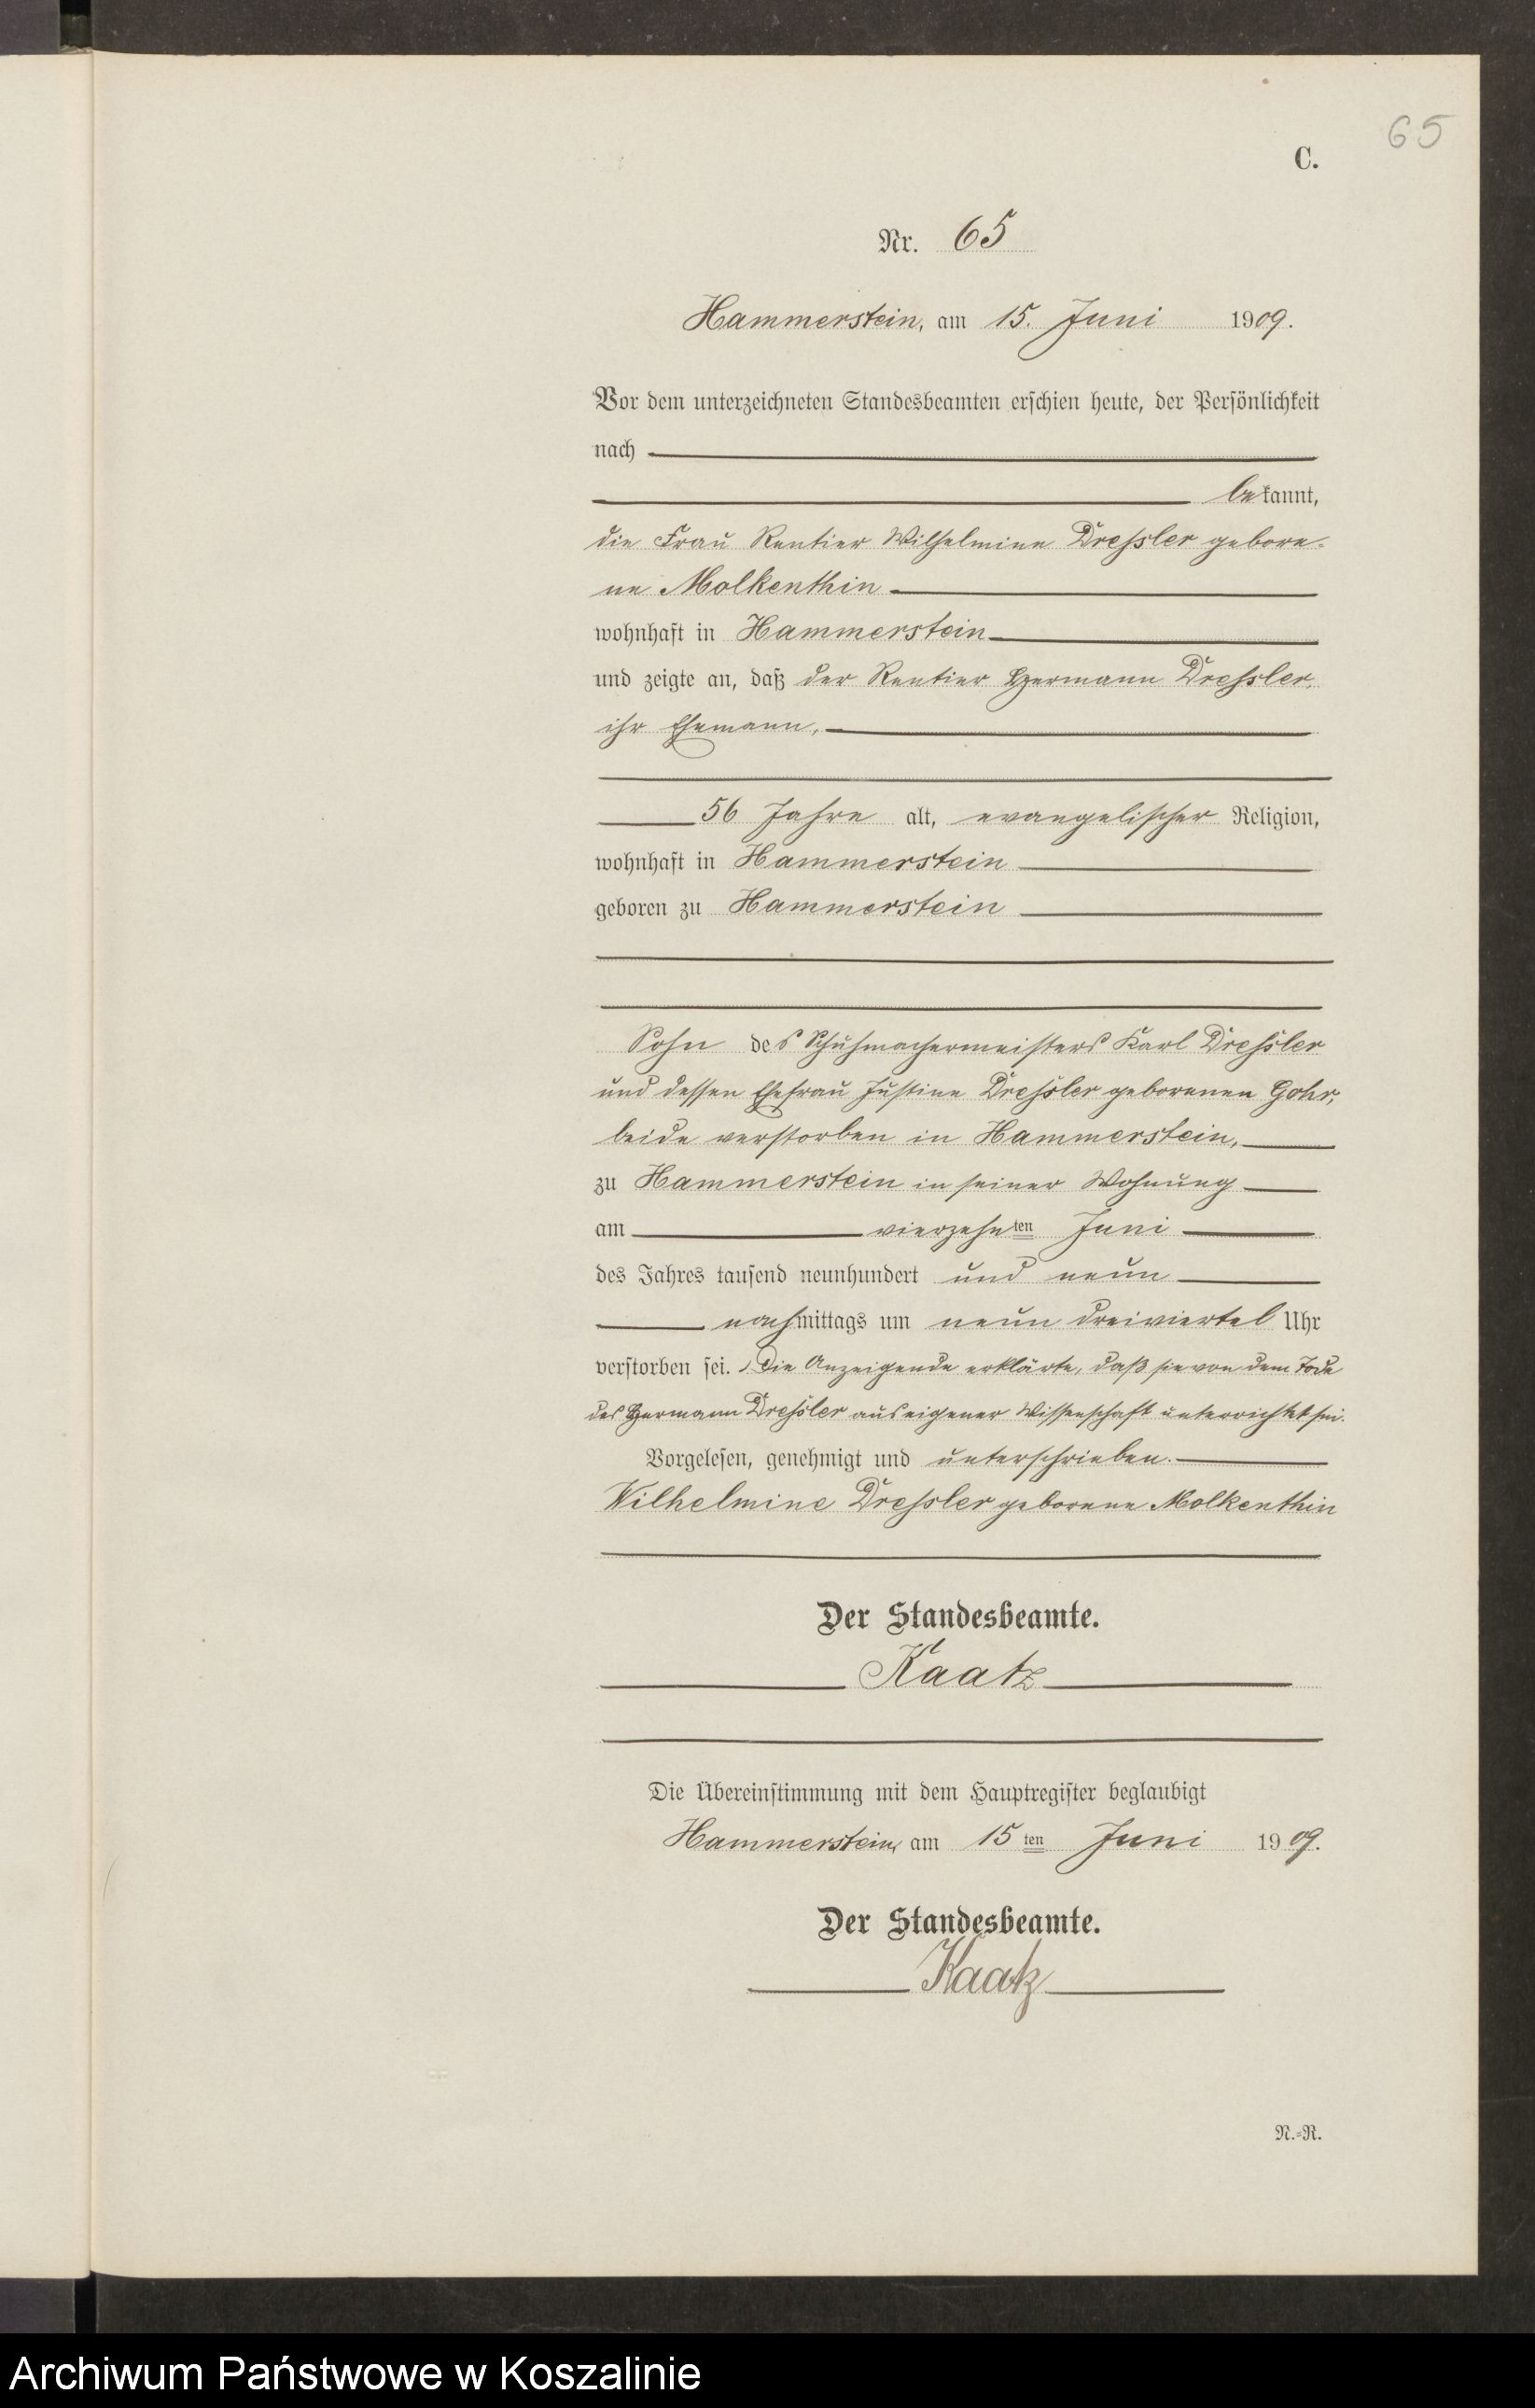 65
C.
Nr. 65
Hammerstein, am 15. Juni 1909.
Vor dem unterzeichneten Standesbeamten erschien heute, der Persönlichkeit
nach
bekannt,
die Frau Rentier Wilhelmine Dressler gebore-
ne Molkenthin
wohnhaft in Hammerstein
und zeigte an, daß der Rentier Hermann Dressler,
ihr Ehemann,
56 Jahre alt, evangelischer Religion,
wohnhaft in Hammerstein
geboren zu Hammerstein
Sohn des Schuhmachermeisters Karl Dressler
und dessen Ehefrau Justine Dressler geborenen Gohr,
beide verstorben in Hammerstein,
zu Hammerstein in seiner Wohnung
am vierzehnten Juni
des Jahres tausend neunhundert und neun
nachmittags um neun dreiviertel Uhr
verstorben sei. Die Anzeigende erklärte, daß sie von dem Tode
des Hermann Dressler aus eigener Wissenschaft unterrichtet sei.
Vorgelesen, genehmigt und unterschrieben.
Wilhelmine Dressler geborene Molkenthin
Der Standesbeamte.
Kaatz
Die Übereinstimmung mit dem Hauptregister beglaubigt
Hammerstein, am 15ten Juni 1909.
Der Standesbeamte.
Kaatz
N.=R.
Archiwum Państwowe w Koszalinie